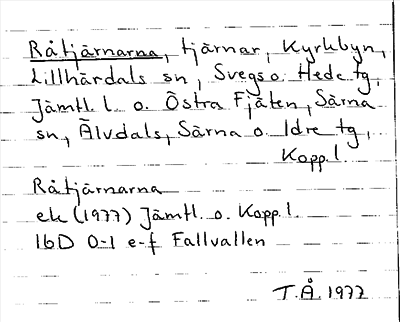 Råtjärnarna, tjärnar, Kyrkbyn,
Lillhärdals sn, Svegs o. Hede tg,
Jämtl. l. o. Östra Fjäten, Särna
sn, Älvdals, Särna o. Idre tg,
Kopp. l.
Råtjärnarna
ek (1977) Jämtl. o. Kopp. l.
16D 0-1 e-f Fallvallen
T.Å. 1977